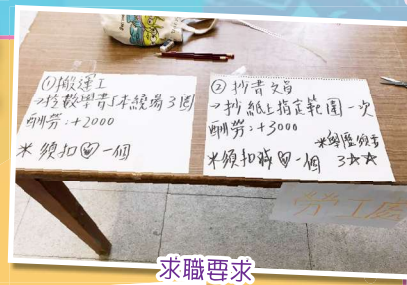 ①搬運工
→拾數學書1本繞場3圈
酬勞:+2000
*須扣♡一個
②抄書文員
→抄紙上指定範圍一次
酬勞:+3000
*學歷須要
3☆☆
*須扣減♡一個
求職要求